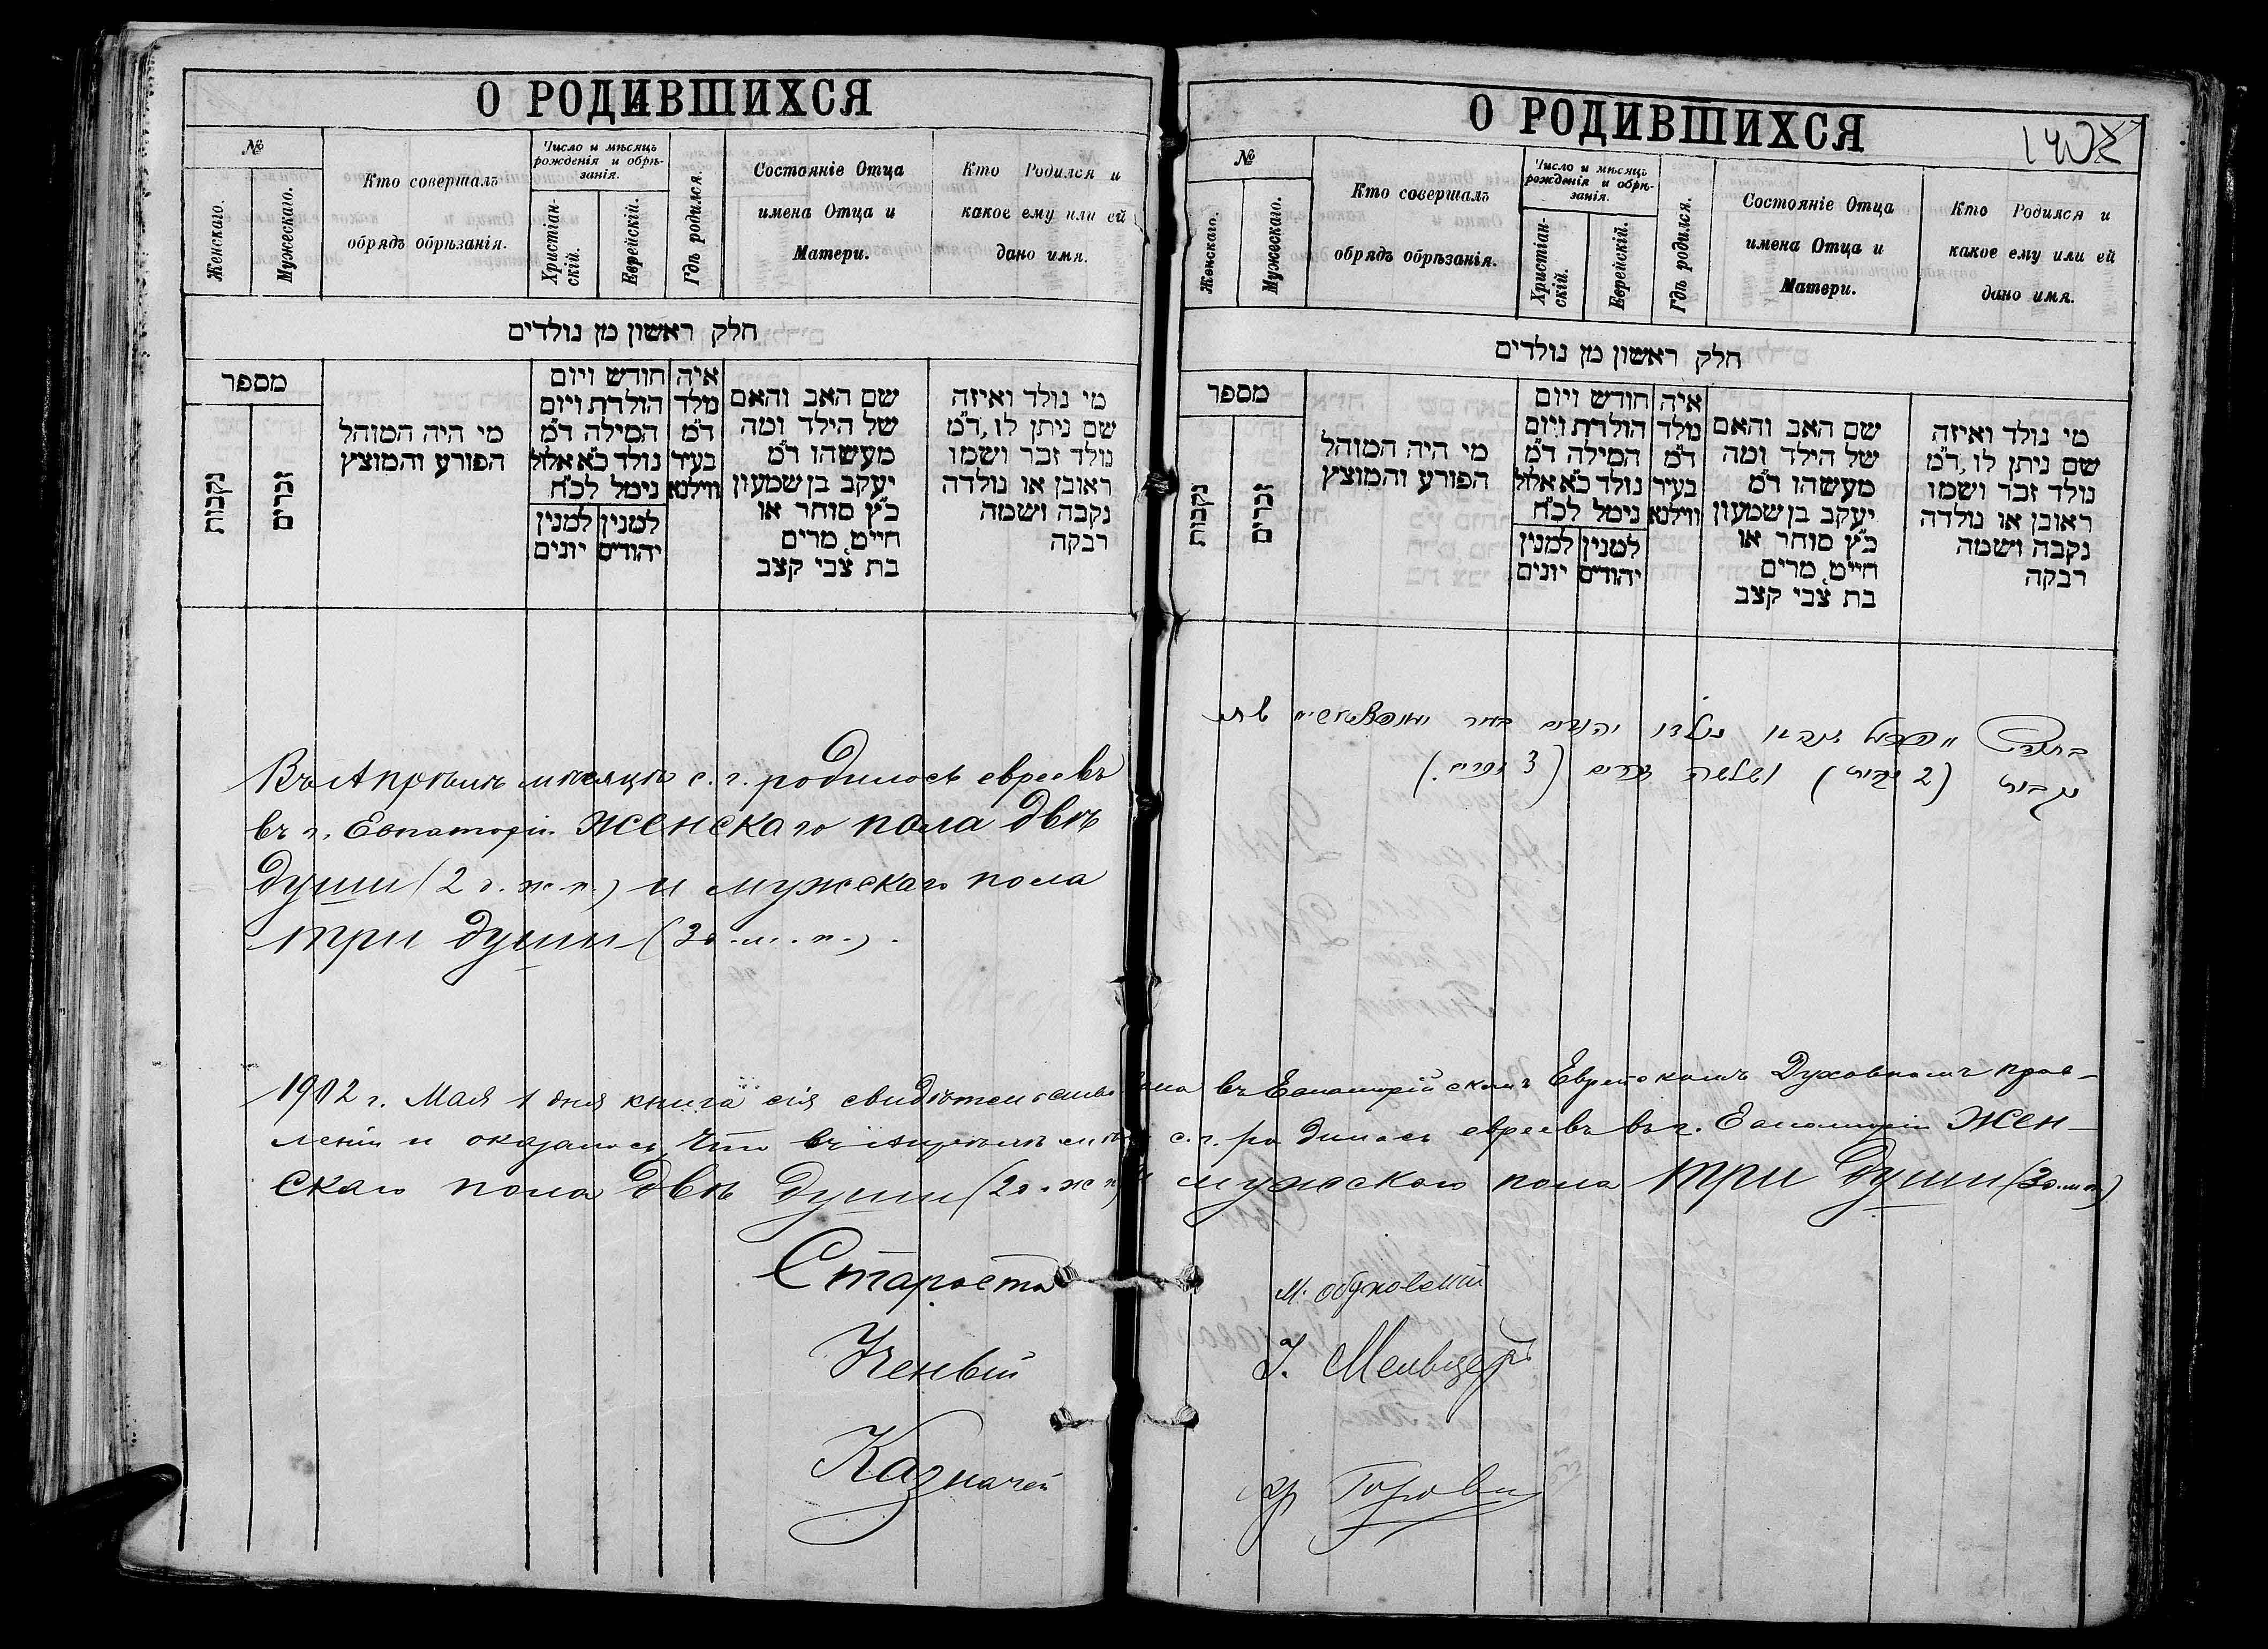 О РОДИВШИХСЯ
№
Женскаго.
Мужескаго.
Кто совершалъ
обрядъ обрѣзанія.
Число и мѣсяцъ
рожденія и обрѣ-
занія.
Христіан-
скій.
Еврейскій.
Гдѣ родился.
Состояніе Отца
имена Отца и
Матери.
Кто Родился и
какое ему или ей
дано имя.
חלק ראשון מן נולדים
מספר
נקבות
זכרים
מי היה המוהל
הפורע והמוצץ
חודש ויום
הולדת ויום
המילה ד״מ
נולד כ״א אלול
נימל לכ״ח
למנין יהודים
למנין יונים
איה
מלד
ד״מ
בעיר
ווילנא
שם האב והאם
של הילד ומה
מעשהו ד״מ
יעקב בן שמעון
כ״ץ סוחר או
חייט, מרים
בת צבי קצב
מי נולד ואיזה
שם ניתן לו, ד״מ
נולד זכר ושמו
ראובן או נולדה
נקבה ושמה
רבקה
Въ Апрѣлѣ мѣсяцѣ с. г. родилось евреевъ
въ г. Евпаторіи женскаго пола двѣ
души (2 д. ж. п.) и мужскаго пола
три души (3 д. м. п.).
О РОДИВШИХСЯ
140
№
Женскаго.
Мужескаго.
Кто совершалъ
обрядъ обрѣзанія.
Число и мѣсяцъ
рожденія и обрѣ-
занія.
Христіан-
скій.
Еврейскій.
Гдѣ родился.
Состояніе Отца
имена Отца и
Матери.
Кто Родился и
какое ему или ей
дано имя.
חלק ראשון מן נולדים
מספר
נקבות
זכרים
מי היה המוהל
הפורע והמוצץ
חודש ויום
הולדת ויום
המילה ד״מ
נולד כ״א אלול
נימל לכ״ח
למנין יהודים
למנין יונים
איה
מלד
ד״מ
בעיר
ווילנא
שם האב והאם
של הילד ומה
מעשהו ד״מ
יעקב בן שמעון
כ״ץ סוחר או
חייט, מרים
בת צבי קצב
מי נולד ואיזה
שם ניתן לו, ד״מ
נולד זכר ושמו
ראובן או נולדה
נקבה ושמה
רבקה
נולדו יהודים בעיר
נקבות (2 נקבות) ושלשה זכרים (3 זכרים.)
1902 г. Мая 1 дня книга сія свидѣтельствована въ Евпаторійскомъ Еврейскомъ Духовномъ прав-
леніи и оказалось, что въ Апрѣлѣ мѣс. с. г. родилось евреевъ въ г. Евпаторіи жен-
скаго пола двѣ души (2 д. ж. п.) и мужскаго пола три души (3 д. м. п.)
Староста М. Обуховскій
Ученый Мельцеръ
Казначей